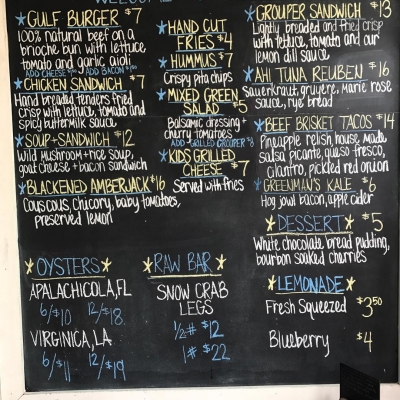 GULF BURGER $7
100% natural beef on a
brioche bun with lettuce
tomato and garlic aioli
ADD CHEESE ADD BACON
CHICKEN SANDWICH $7
Hand breaded tenders fried
crisp with lettuce, tomato and
spicy buttermilk sauce
SOUP+SANDWICH $12
Wild mushroom+rice soup,
goat cheese+bacon sandwich
BLACKENED AMBERJACK $16
Couscous, chicory, baby tomatoes,
preserved lemon
OYSTERS
APALACHICOLA, FL
6/$10 12/$18
VIRGINICA, LA
6/$11 12/$19
HAND CUT
FRIES $4
HUMMUS $7
Crispy pita chips
MIXED GREEN
SALAD $5
Balsamic dressing+
cherry tomatoes
ADD-GRILLED GROUPER $8
KIDS GRILLED
CHEESE $7
Served with fries
RAW BAR
SNOW CRAB
LEGS
1/2# $12
1# $22
GROUPER SANDWICH $13
Lightly breaded and fried crisp
with lettuce, tomato and our
lemon dill sauce
AHI TUNA REUBEN $16
Sauerkraut, gruyere, marie rose
sauce, rye bread
BEEF BRISKET TACOS $14
Pineapple relish, house made
salsa picante, queso fresco,
cilantro, pickled red onion
GREENMAN'S KALE $6
Hog jowl bacon, apple cider
DESSERT $5
White chocolate bread pudding,
bourbon soaked cherries
LEMONADE
Fresh Squeezed $3.50
Blueberry $4